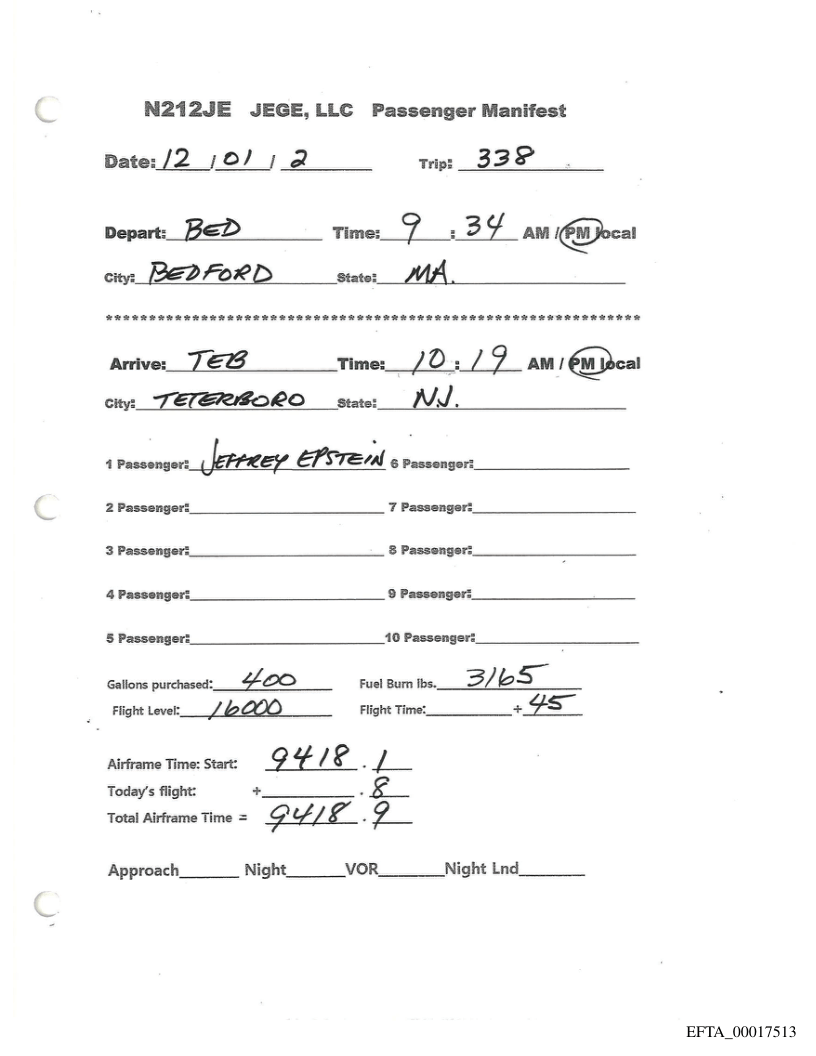 N212JE JEGE, LLC Passenger Manifest
Date: 12 / 01 / 2 Trip: 338
Depart: BED Time: 9 : 34 AM / PM local
City: BEDFORD State: MA.
****************************************************************
Arrive: TEB Time: 10 : 19 AM / PM local
City: TETERBORO State: N.J.
1 Passenger: JEFFREY EPSTEIN 6 Passenger:
2 Passenger: 7 Passenger:
3 Passenger: 8 Passenger:
4 Passenger: 9 Passenger:
5 Passenger: 10 Passenger:
Gallons purchased: 400 Fuel Burn lbs. 3165
Flight Level: 16000 Flight Time: + 45
Airframe Time: Start: 9418 . 1
Today's flight: + . 8
Total Airframe Time = 9418 . 9
Approach Night VOR Night Lnd
EFTA_00017513